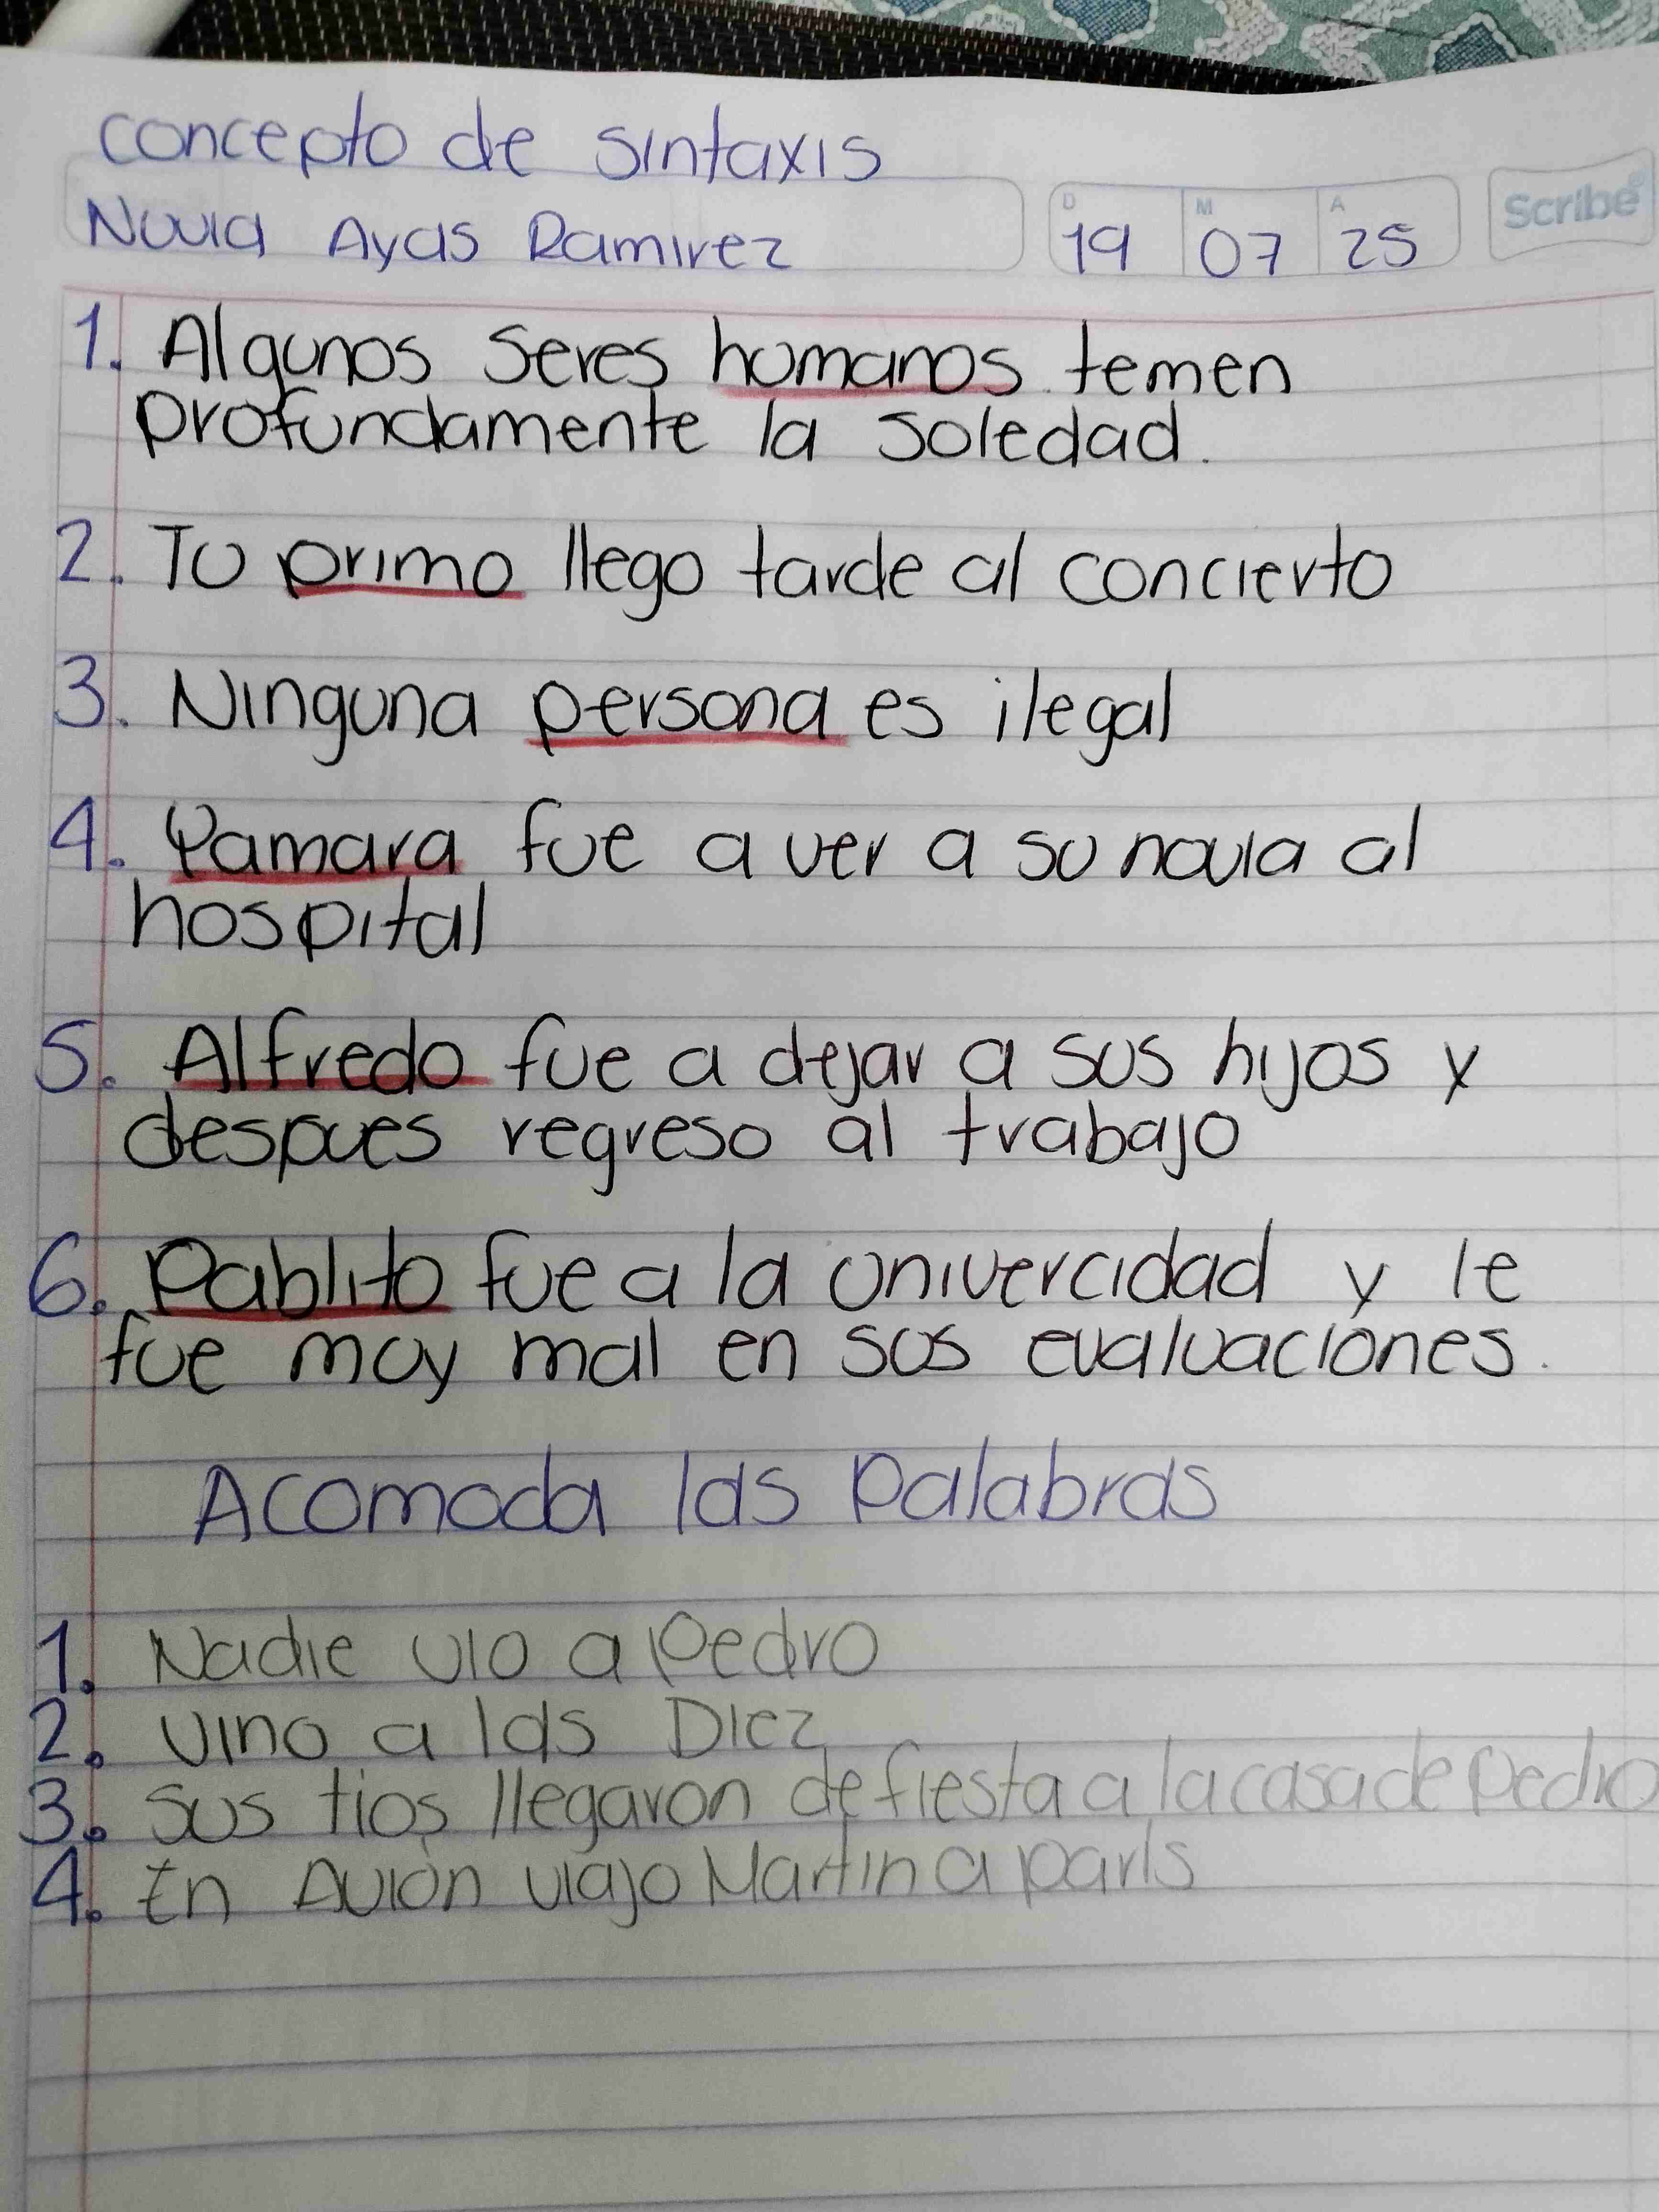 concepto de sintaxis
Scribe
D M A
Nuvia Ayas Ramirez 19 07 25
1. Algunos seres humanos temen
profundamente la soledad.
2. Tu primo llego tarde al concierto
3. Ninguna persona es ilegal
4. Yamara fue a ver a su novia al
hospital
5. Alfredo fue a dejar a sus hijos y
despues regreso al trabajo
6. Pablito fue a la univercidad y le
fue muy mal en sus evaluaciones.
Acomoda las palabras
1. Nadie vio a Pedro
2. vino a las Diez
3. sus tios llegaron de fiesta a la casa de Pedro
4. En Avión viajo Martin a parís